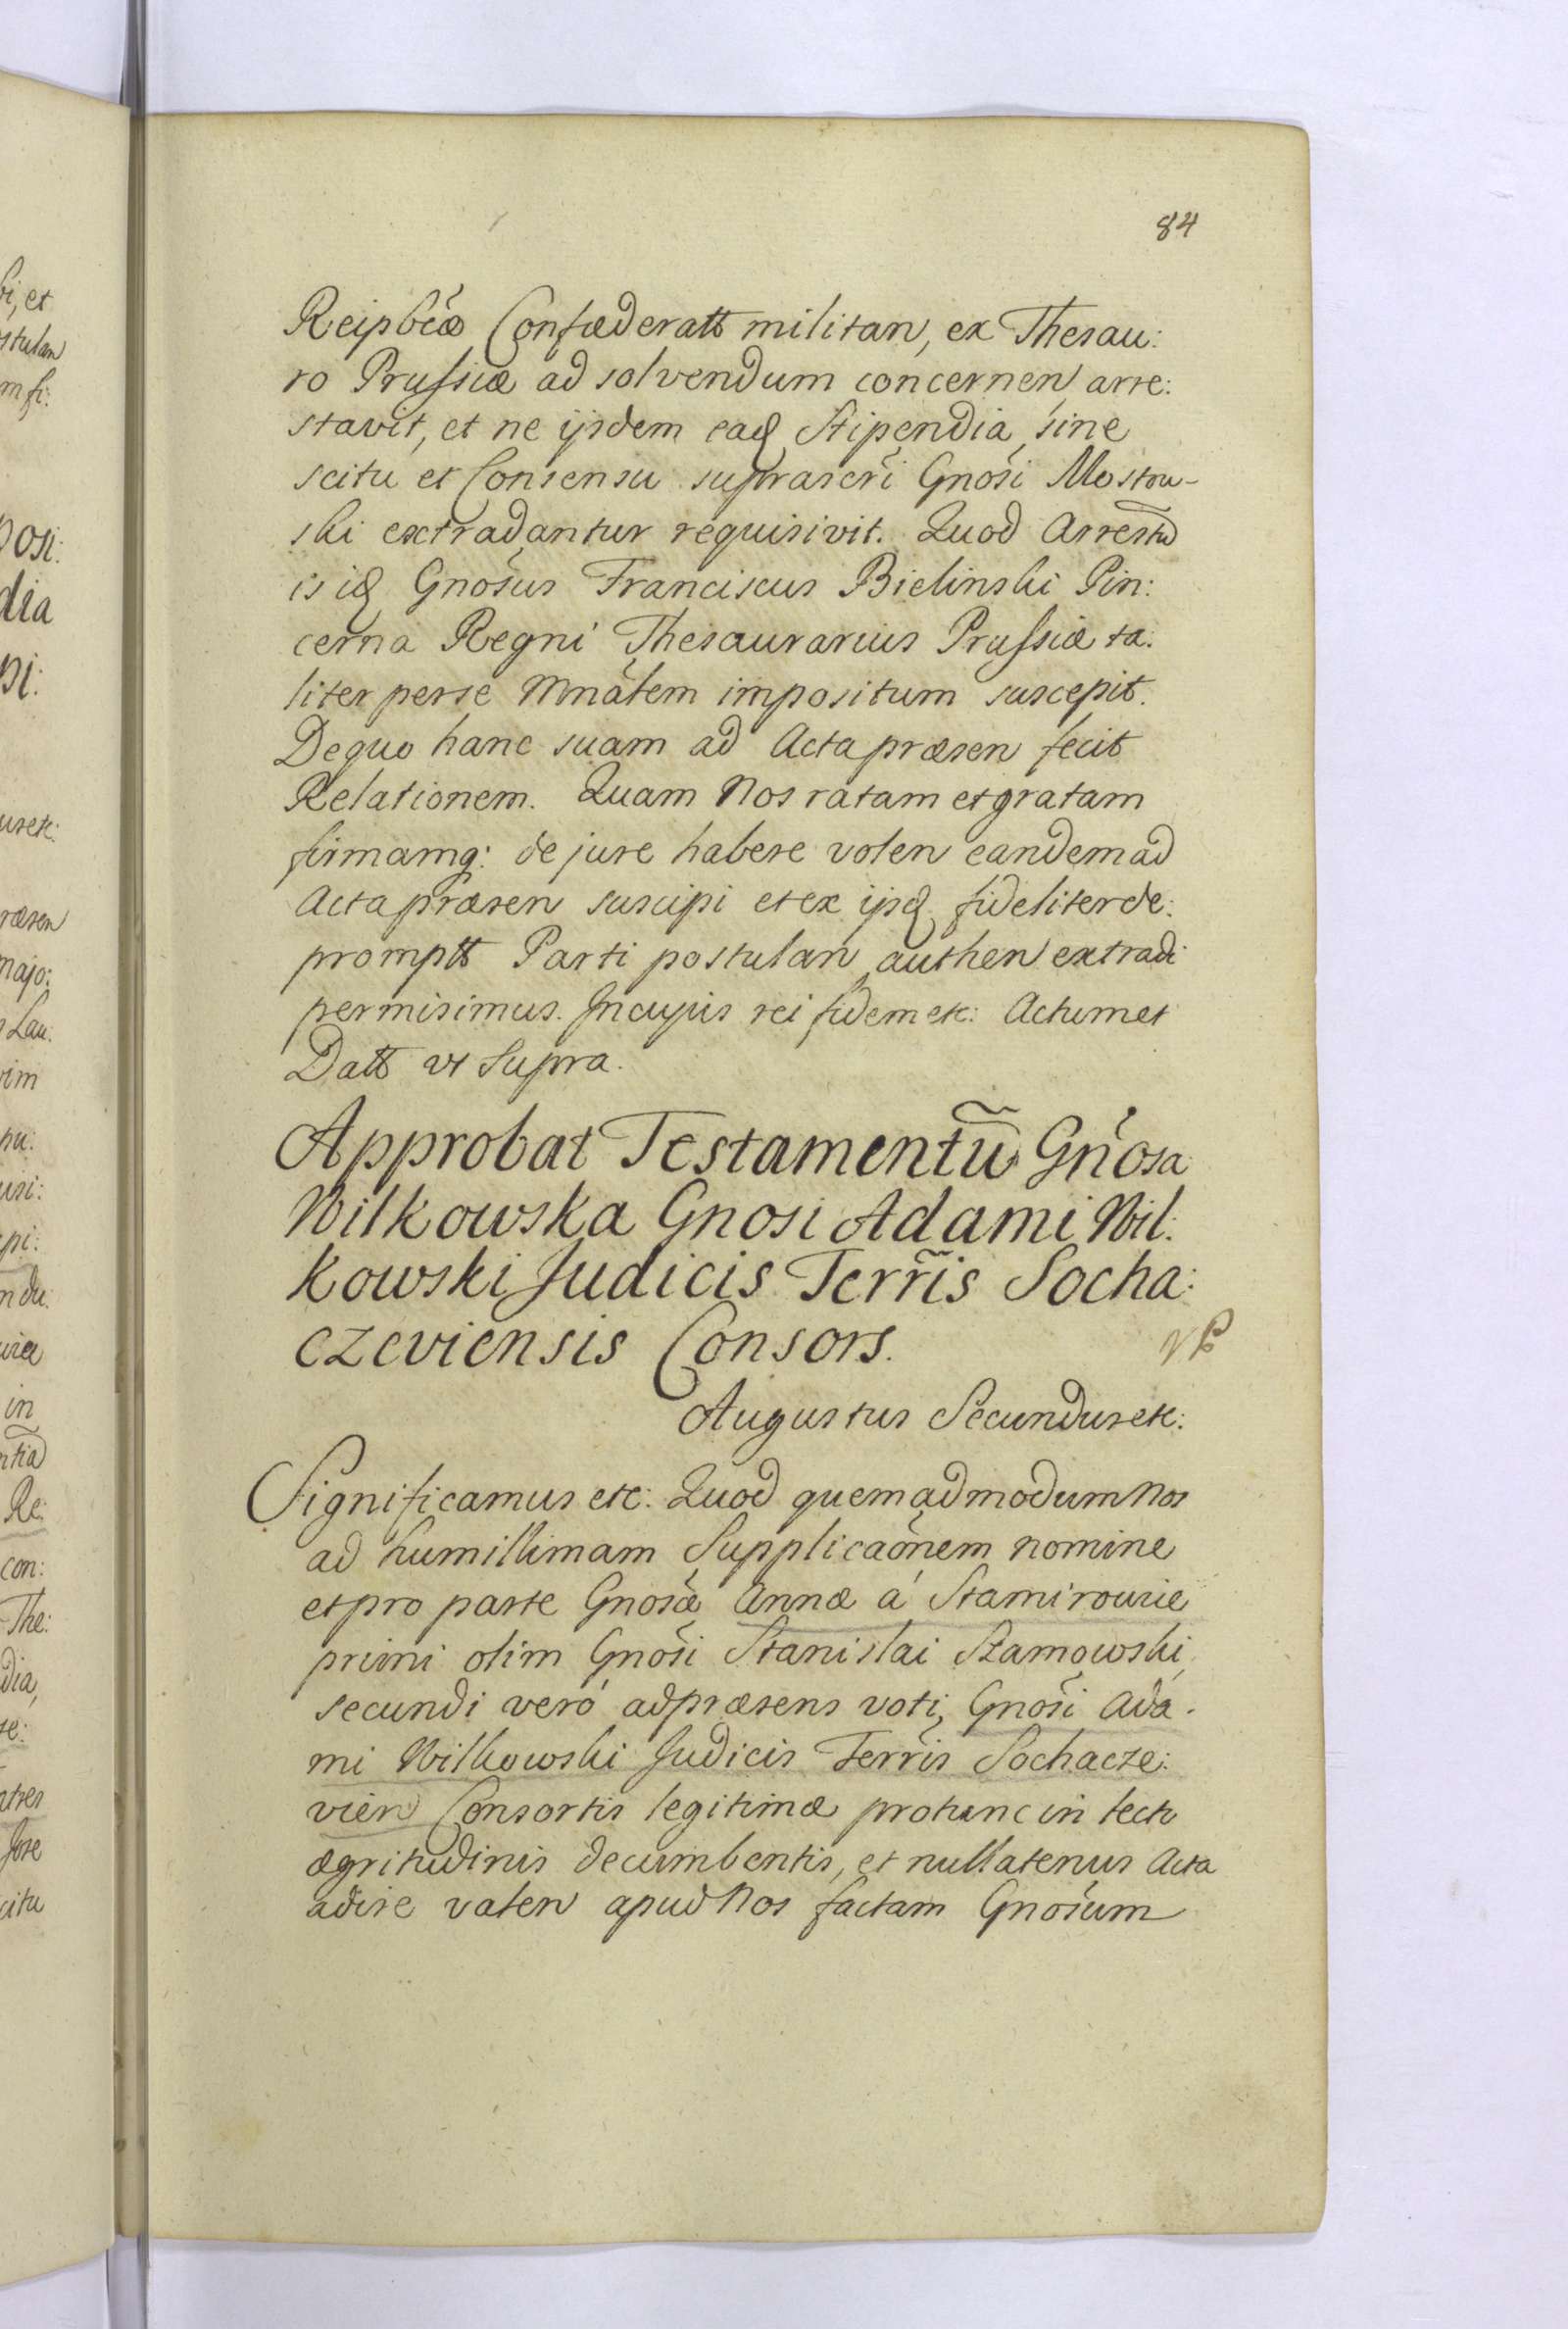 84
Reipb͠cæ Confæderatt militan, ex Thesau:
ro Prussiæ ad solvendum concernen arre:
stavit, et ne ijsdem eaḍ Stipendia sine
scitu et Consensu suprascr̃i Gnosi Mostow-
ski extradantur requisivit. Quod Arrestũ
is iḍ Gnosus Franciscus Bielinski Pin:
cerna Regni Thesaurarius Prussiæ ta:
liter per se Mnãlem impositum suscepit.
De quo hanc suam ad Acta præsen fecit
Relationem. Quam Nos ratam et gratam
firmamq: de jure habere volen eandem ad
Acta præsen suscipi et ex ijsḍ fideliter de:
promptt Parti postulan authen extradi
permisimus. In cujus rei fidem etc: Actum et
Datt vt Supra.
Approbat Testamentũ Gnosa
Wilkowska Gnosi Adami Wil:
kowski Judicis Terr̃is Socha:
czeviensis Consors.
Augustus Secundus etc:
Significamus etc: Quod quemadmodum Nos
ad humillimam Supplicaõnem nomine
et pro parte Gnosæ Annæ á Stamirowie
primi olim Gnosi Stanislai Szamowski,
secundi veró ad præsens voti, Gnosi Ada:
mi Wilkowski Judicis Terr̃is Sochacze:
vien Consortis legitimæ pro tunc in lecto
ægritudinis decumbentis, et nullatenus Acta
adire valen apud Nos factam Gnosum